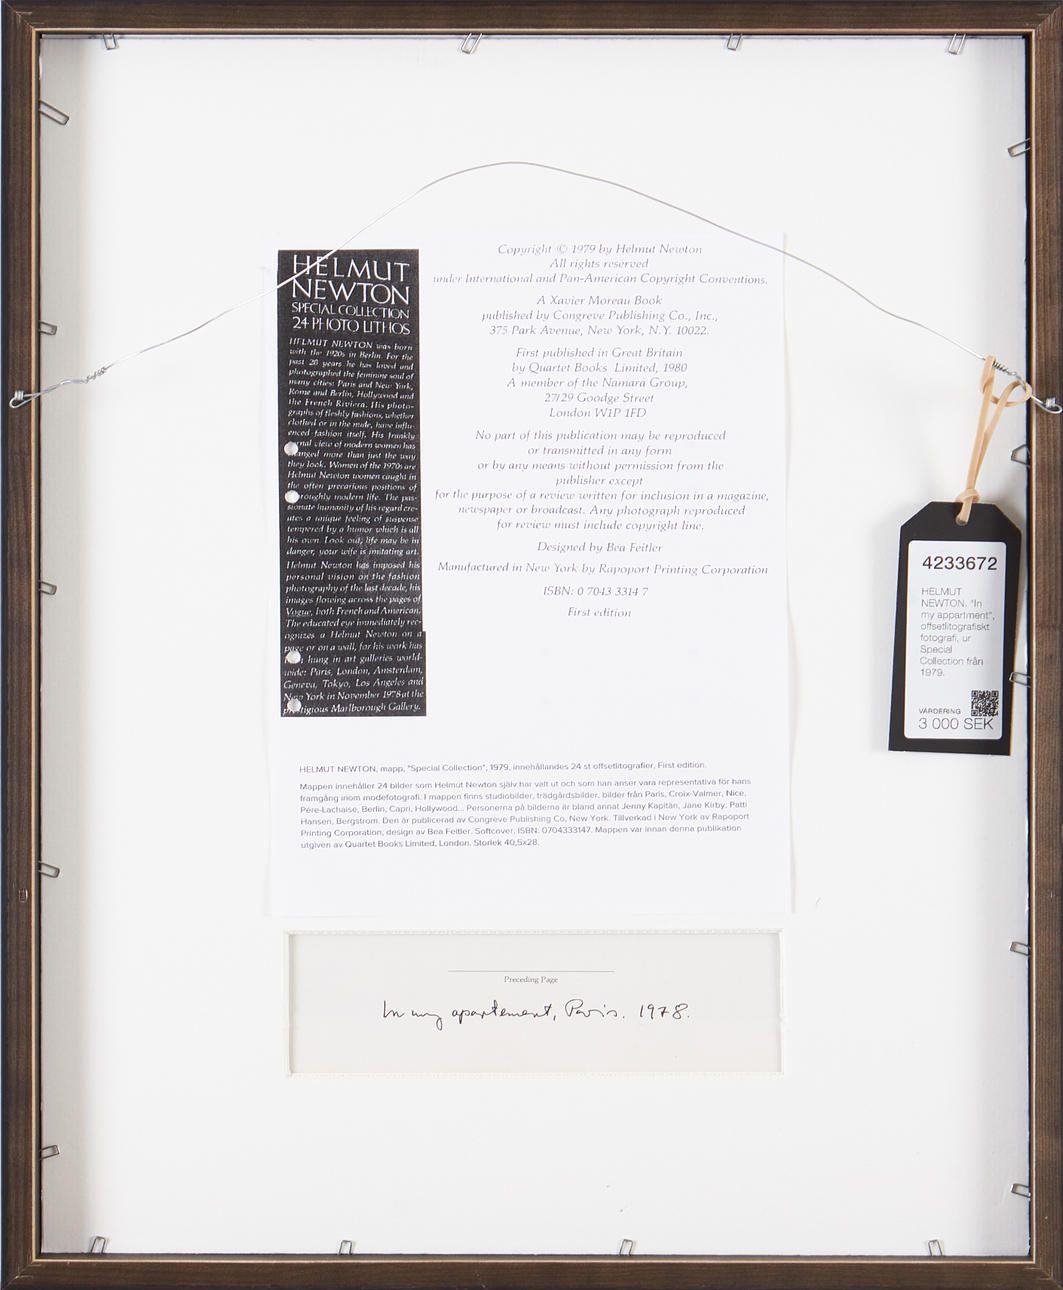 HELMUT
NEWTON
SPECIAL COLLECTION
24 PHOTO LITHOS
HELMUT NEWTON was born
with the 1920s in Berlin. For the
past 20 years he has loved and
photographed the feminine soul of
many cities: Paris and New York,
Rome and Berlin, Hollywood and
the French Riviera. His photo-
graphs of fleshly fashions, whether
clothed or in the nude, have influ-
enced fashion itself. His frankly
view of modern women has
more than just the way
they look. Women of the 1970s are
Helmut Newton women caught in
the often precarious positions of
modern life. The pas-
sionate humanity of his regard cre-
ates a unique feeling of suspense
tempered by a humor which is all
his own. Look out, life may be in
danger, your wife is imitating art.
Helmut Newton has imposed his
personal vision on the fashion
photography of the last decade, his
images flowing across the pages of
Vogue, both French and American.
The educated eye immediately rec-
ognizes a Helmut Newton on a
page or on a wall, for his work has
hung in art galleries world-
wide: Paris, London, Amsterdam,
Geneva, Tokyo, Los Angeles and
New York in November 1978 at the
Marlborough Gallery.
Copyright © 1979 by Helmut Newton
All rights reserved
under International and Pan-American Copyright Conventions.
A Xavier Moreau Book
published by Congreve Publishing Co., Inc.,
375 Park Avenue, New York, N.Y. 10022.
First published in Great Britain
by Quartet Books Limited, 1980
A member of the Namara Group,
27/29 Goodge Street
London W1P 1FD
No part of this publication may be reproduced
or transmitted in any form
or by any means without permission from the
publisher except
for the purpose of a review written for inclusion in a magazine,
newspaper or broadcast. Any photograph reproduced
for review must include copyright line.
Designed by Bea Feitler
Manufactured in New York by Rapoport Printing Corporation
ISBN: 0 7043 3314 7
First edition
4233672
HELMUT
NEWTON. "In
my appartment",
offsetlitografiskt
fotografi, ur
Special
Collection från
1979.
VÄRDERING
3 000 SEK
HELMUT NEWTON, mapp, "Special Collection", 1979, innehållandes 24 st offsetlitografier, First edition.
Mappen innehåller 24 bilder som Helmut Newton själv har valt ut och som han anser vara representativa för hans
framgång inom modefotografi. I mappen finns studiobilder, trädgårdsbilder, bilder från Paris, Croix-Valmer, Nice,
Pére-Lachaise, Berlin, Capri, Hollywood... Personerna på bilderna är bland annat Jenny Kapitän, Jane Kirby, Patti
Hansen, Bergstrom. Den är publicerad av Congreve Publishing Co, New York. Tillverkad i New York av Rapoport
Printing Corporation, design av Bea Feitler. Softcover, ISBN: 0704333147. Mappen var innan denna publikation
utgiven av Quartet Books Limited, London. Storlek 40,5x28.
Preceding Page
In my apartement, Paris. 1978.